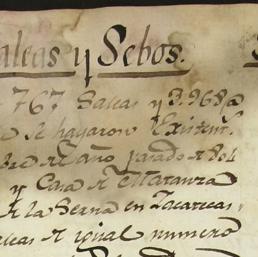 aleas y Sebos.
767 Saleas y 3.968@
se hayaron Existen.
de año pasado de 801
y Casa de Matanza
de la Serna en Zacatecas,
leas de igual numero